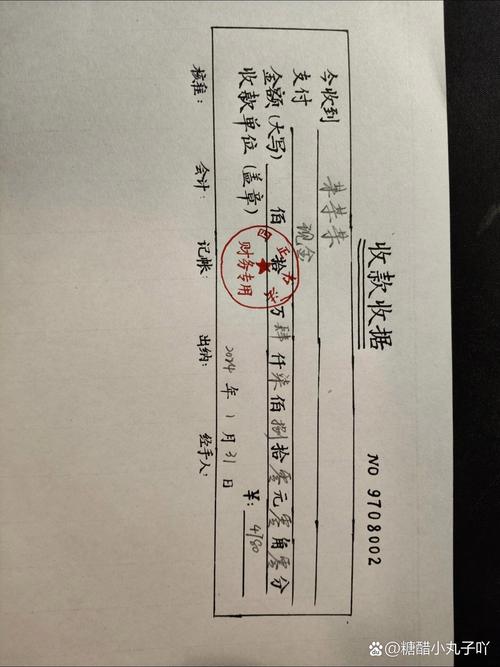 收款收据
NO 9708002
今收到 某某某
支付 现金
金额(大写) 佰 拾 万肆仟柒佰捌拾零元零角零分
收款单位(盖章) ¥: 4780
财务专用
2024年1月31日
核准: 会计: 记帐: 出纳: 经手人:
@糖醋小丸子吖